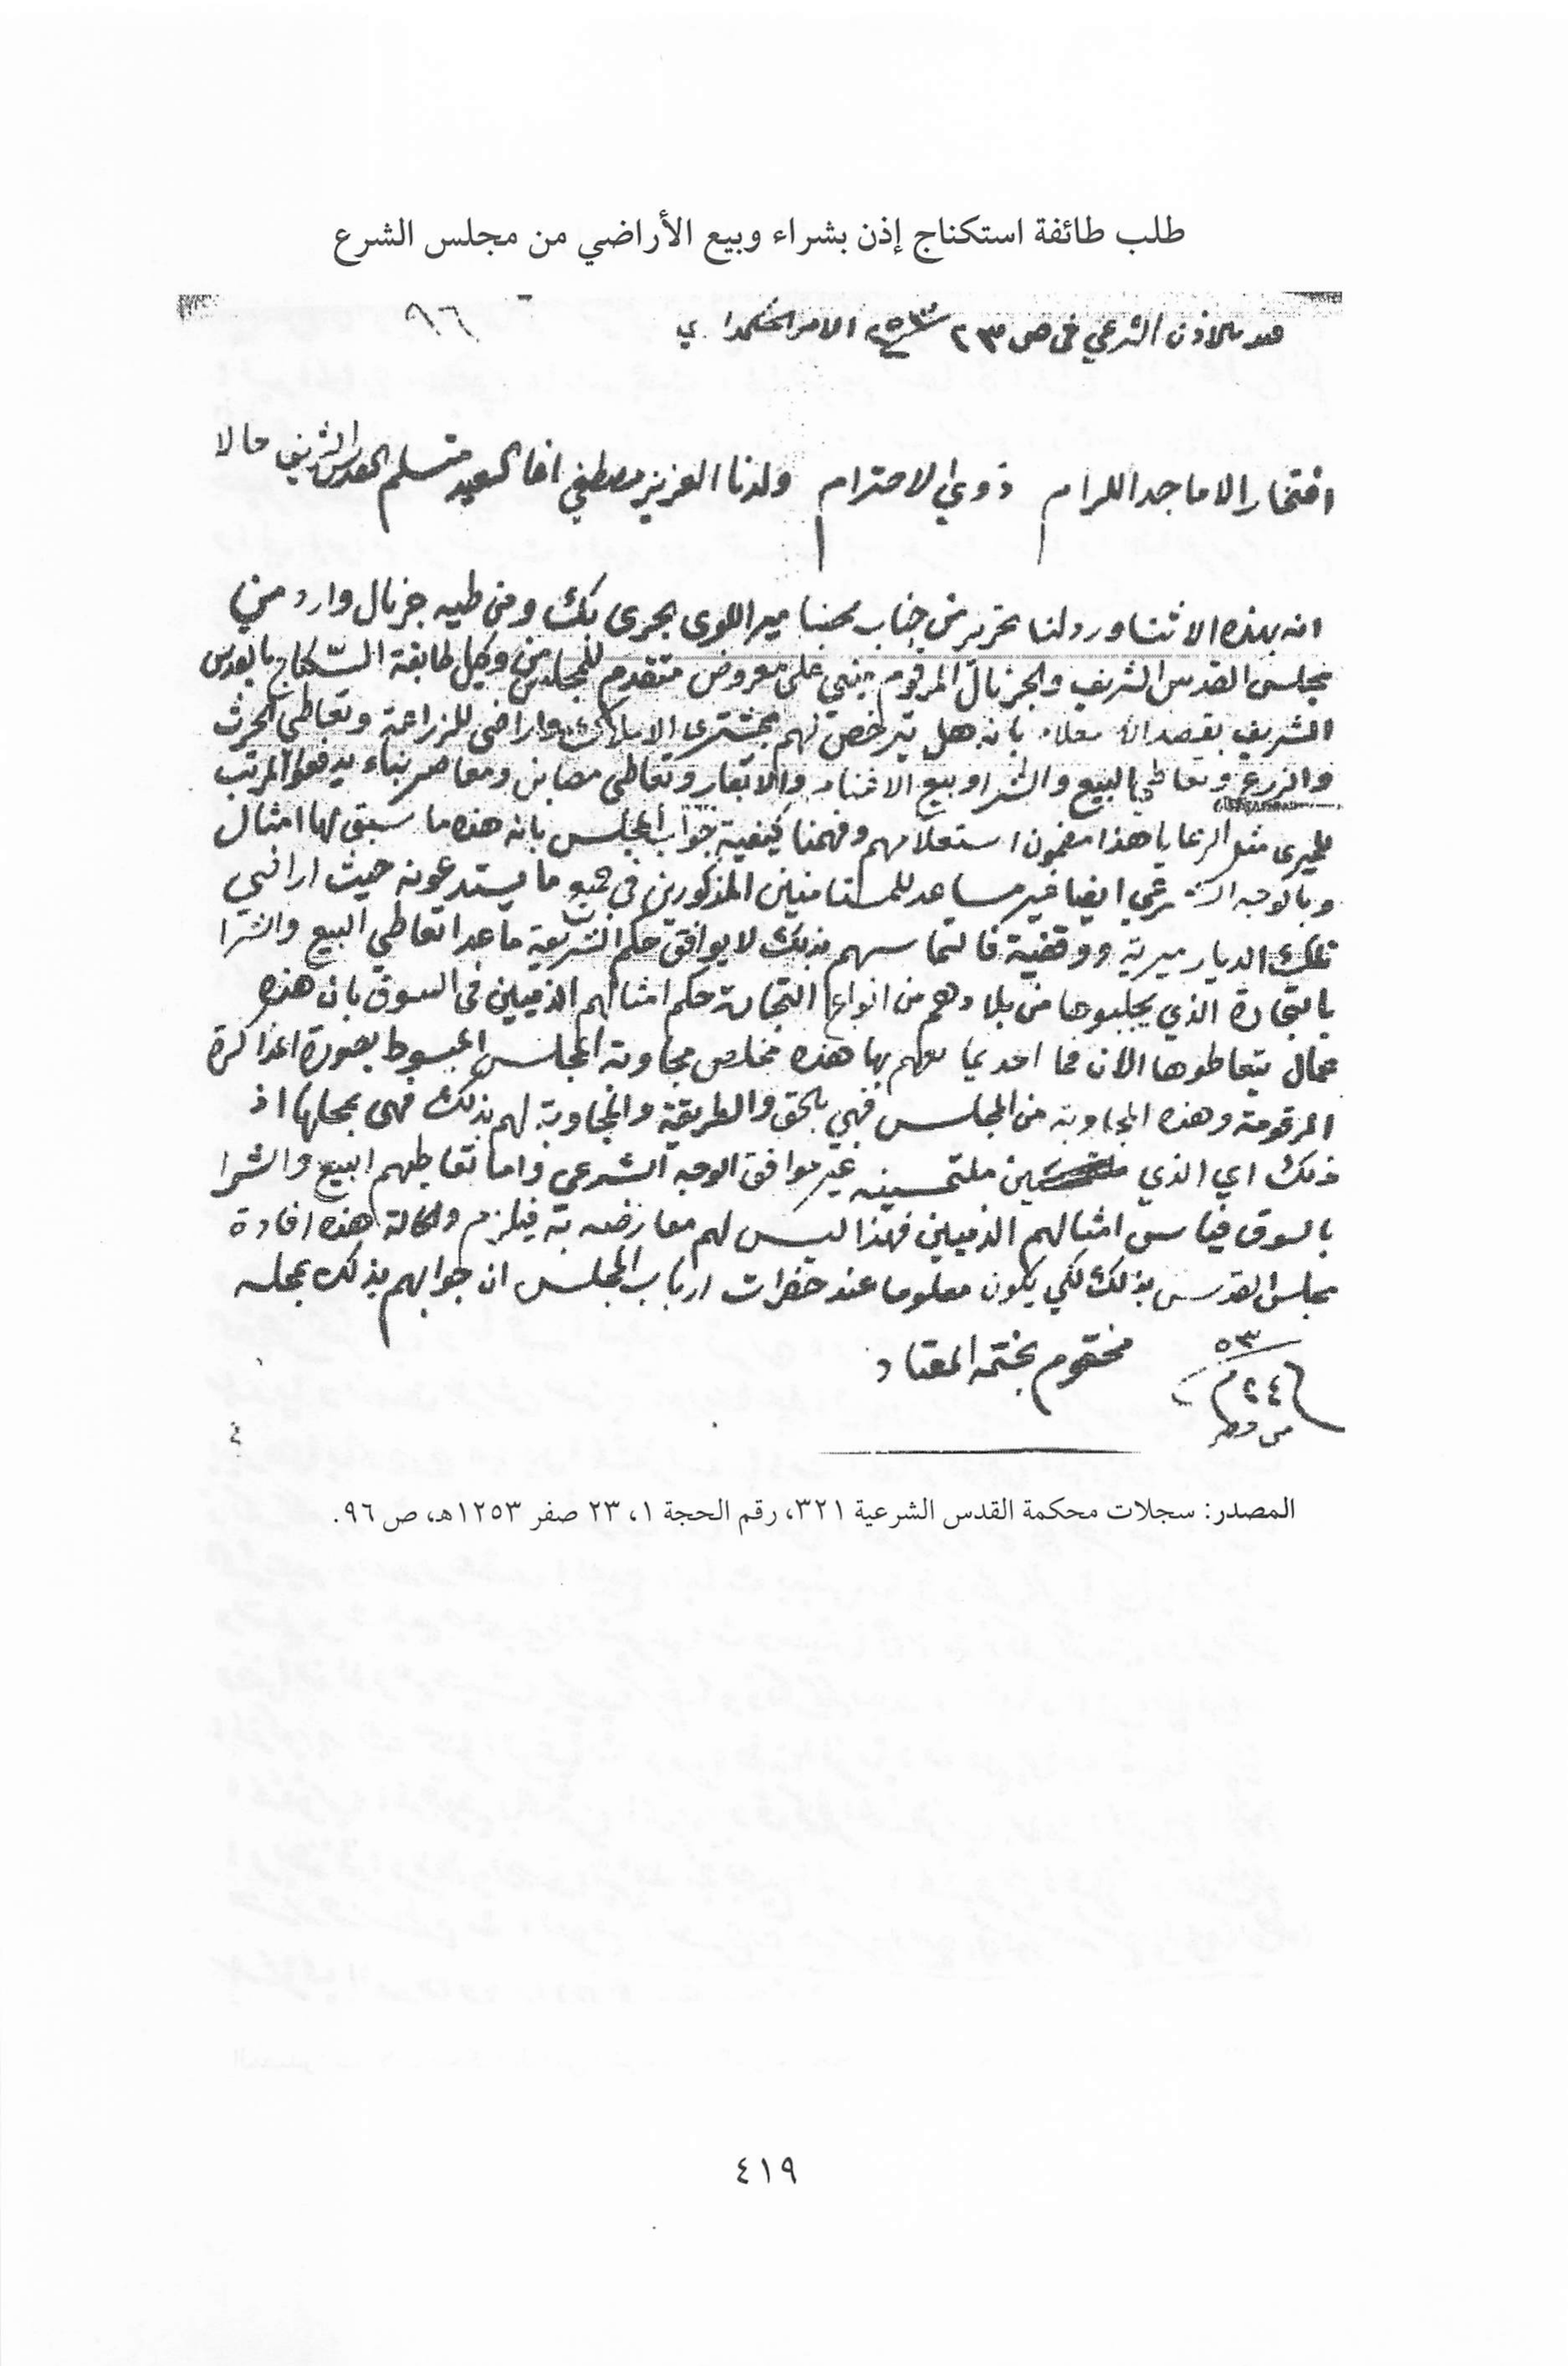 طلب طائفة استكناج إذن بشراء وبيع الأراضي من مجلس الشرع
٩٦
الاذن الشرعي في ص ٢٣ الامر الحكمداري
افتخار الاماجد الكرام ذوي الاحترام ولدنا العزيز مصطفى اغا السعيد متسلم القدس الشريف حالا
انه بهذه الاثنا ورد لنا تحرير من جناب محبنا مير اللوى بحرى بك وفي طيه جرنال وارد من
مجلس القدس الشريف والجرنال المرقوم مبني على معروض متقدم للمجلس من وكيل طايفة السكناج بالقدس
الشريف بقصد الاستعلام بانه هل يترخص لهم بمشترى الاملاك واراضى للزراعة وتعاطي الحرث
والزرع وتعاطي البيع والشرا وبيع الاغنام والابقار وتعاطى مصابن ومعاصر بناء يدفعوا المرتب
للميرى مثل الرعايا هذا مضمون استعلامهم وفهمنا كيفية جواب المجلس بانه هذه ما سبق لها امثال
وبالوجه الشرعي ايضا غير مساعد للمستامنين المذكورين في ما يستدعونه حيث اراضي
تلك الديار ميرية ووقفية فالتماسهم بذلك لا يوافق حكم الشريعة ما عدا تعاطي البيع والشرا
بالتجارة الذي يجلبوها من بلادهم من انواع التجارة حكم امثالهم الذميين في السوق بان هذه
يتعاطوها الان فما احد بها هذه مخلص مجاوبة المجلس المبسوط بصورة المذاكرة
المرقومة وهذه المجاوبة من المجلس فهي بالحق والطريقة والمجاوبة لهم بذلك فهى بمحلها اذ
ذلك اي الذي ملتمسينه غير موافق الوجه الشرعي واما تعاطيهم البيع والشرا
بالسوق قياس امثالهم الذميين فهذا ليس لهم معارضه به فيلزم والحالة هذه افادة
مجلس القدس بذلك لكي يكون معلوما عند حضرات ارباب المجلس ان جوابهم بذلك بمحله
مختوم بختمه المعتاد
٥٣
٢٤
المصدر: سجلات محكمة القدس الشرعية ٣٢١، رقم الحجة ١، ٢٣ صفر ١٢٥٣هـ، ص ٩٦.
٤١٩